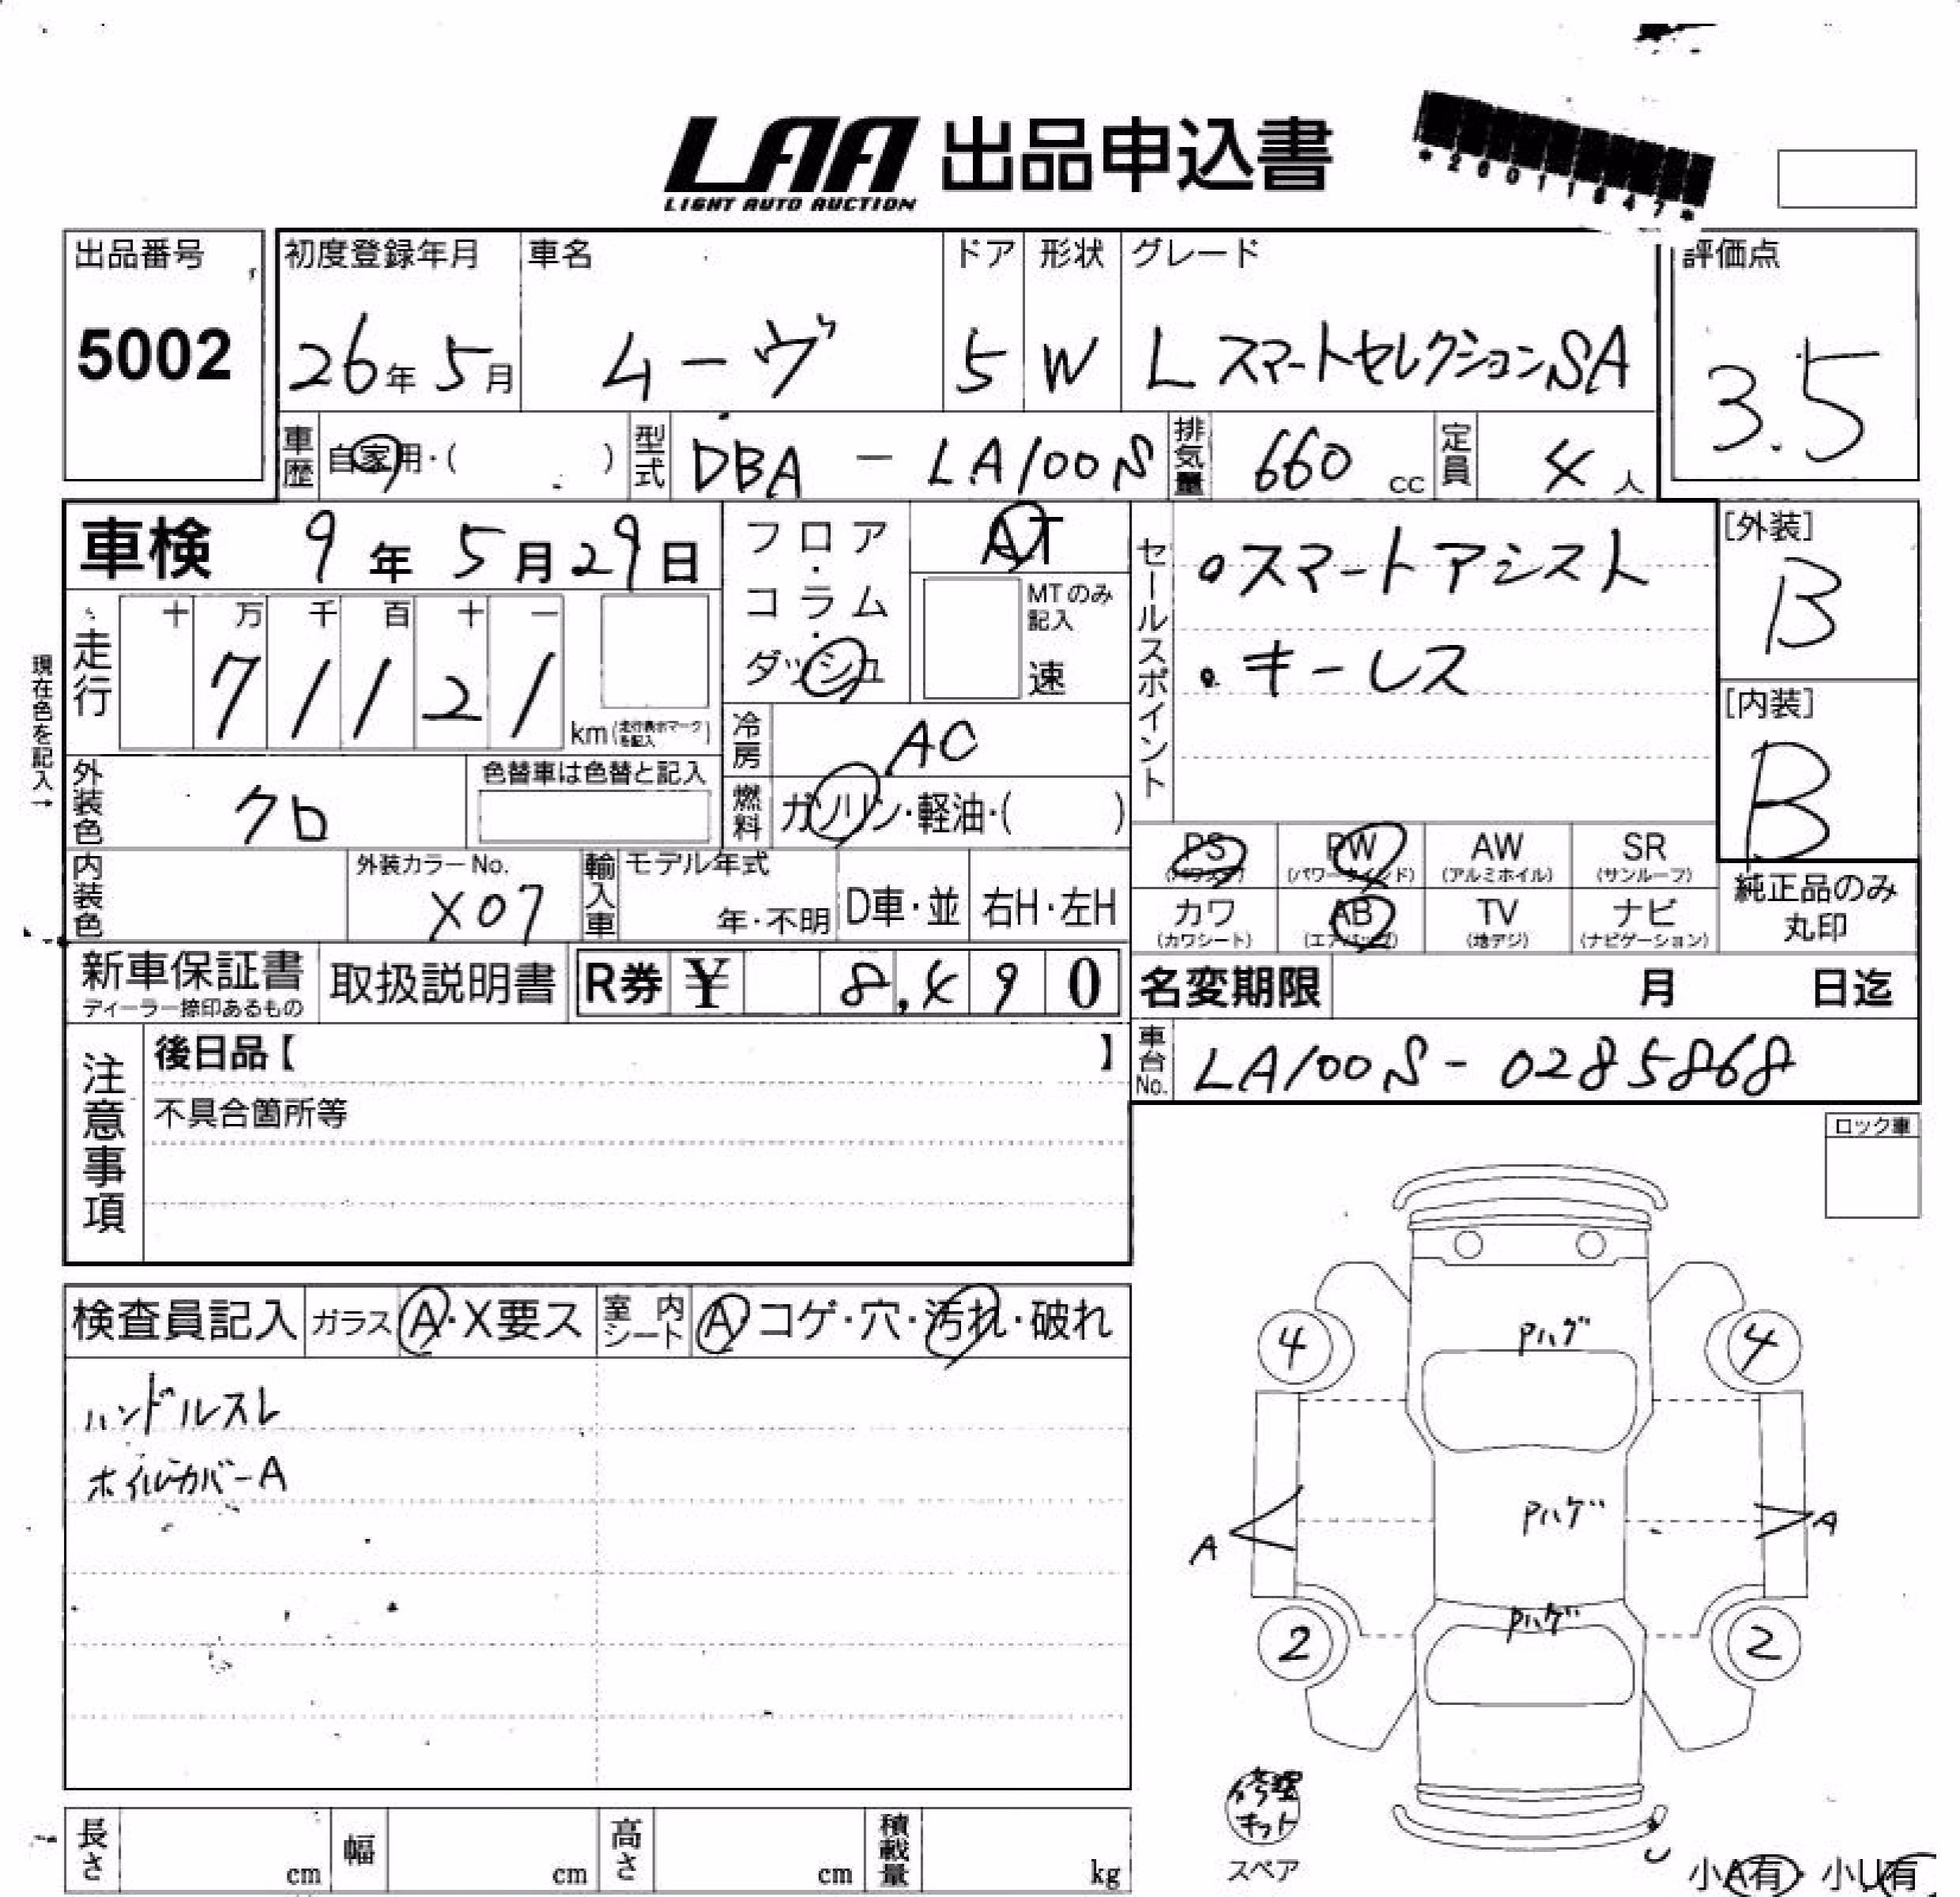 LAA 出品申込書
LIGHT AUTO AUCTION
*20011847*
出品番号
5002
初度登録年月
26年5月
車名
ムーヴ
ドア
5
形状
W
グレード
L スマートセレクションSA
評価点
3.5
車歴
自家用・( )
型式
DBA - LA100S
排気量
660 cc
定員
4人
車検 9年5月29日
フロア・コラム・ダッシュ
AT
MTのみ記入
速
セールスポイント
・スマートアシスト
・キーレス
[外装]
B
[内装]
B
現在色を記入→
走行
十 万 千 百 十 一
7 1 1 2 1
km(走行表示マークを記入)
冷房
AC
外装色
クロ
色替車は色替と記入
燃料
ガソリン・軽油・( )
PS
(パワステ)
PW
(パワーウインド)
AW
(アルミホイル)
SR
(サンルーフ)
内装色
外装カラーNo.
X07
輸入車
モデル年式
年・不明
D車・並
右H・左H
カワ
(カワシート)
AB
(エアバッグ)
TV
(地デジ)
ナビ
(ナビゲーション)
純正品のみ
丸印
新車保証書
ディーラー捺印あるもの
取扱説明書
R券 ¥ 8,490
名変期限 月 日迄
注意事項
後日品【 】
不具合箇所等
車台No.
LA100S-0285868
ロック車
検査員記入
ガラス
A・X要ス
室内シート
A コゲ・穴・汚れ・破れ
ハンドルスレ
ホイルカバーA
4
Pハゲ
4
A
Pハゲ
A
Pハゲ
2
2
修理
キット
スペア
U
小A有・小U有
長さ cm
幅 cm
高さ cm
積載量 kg